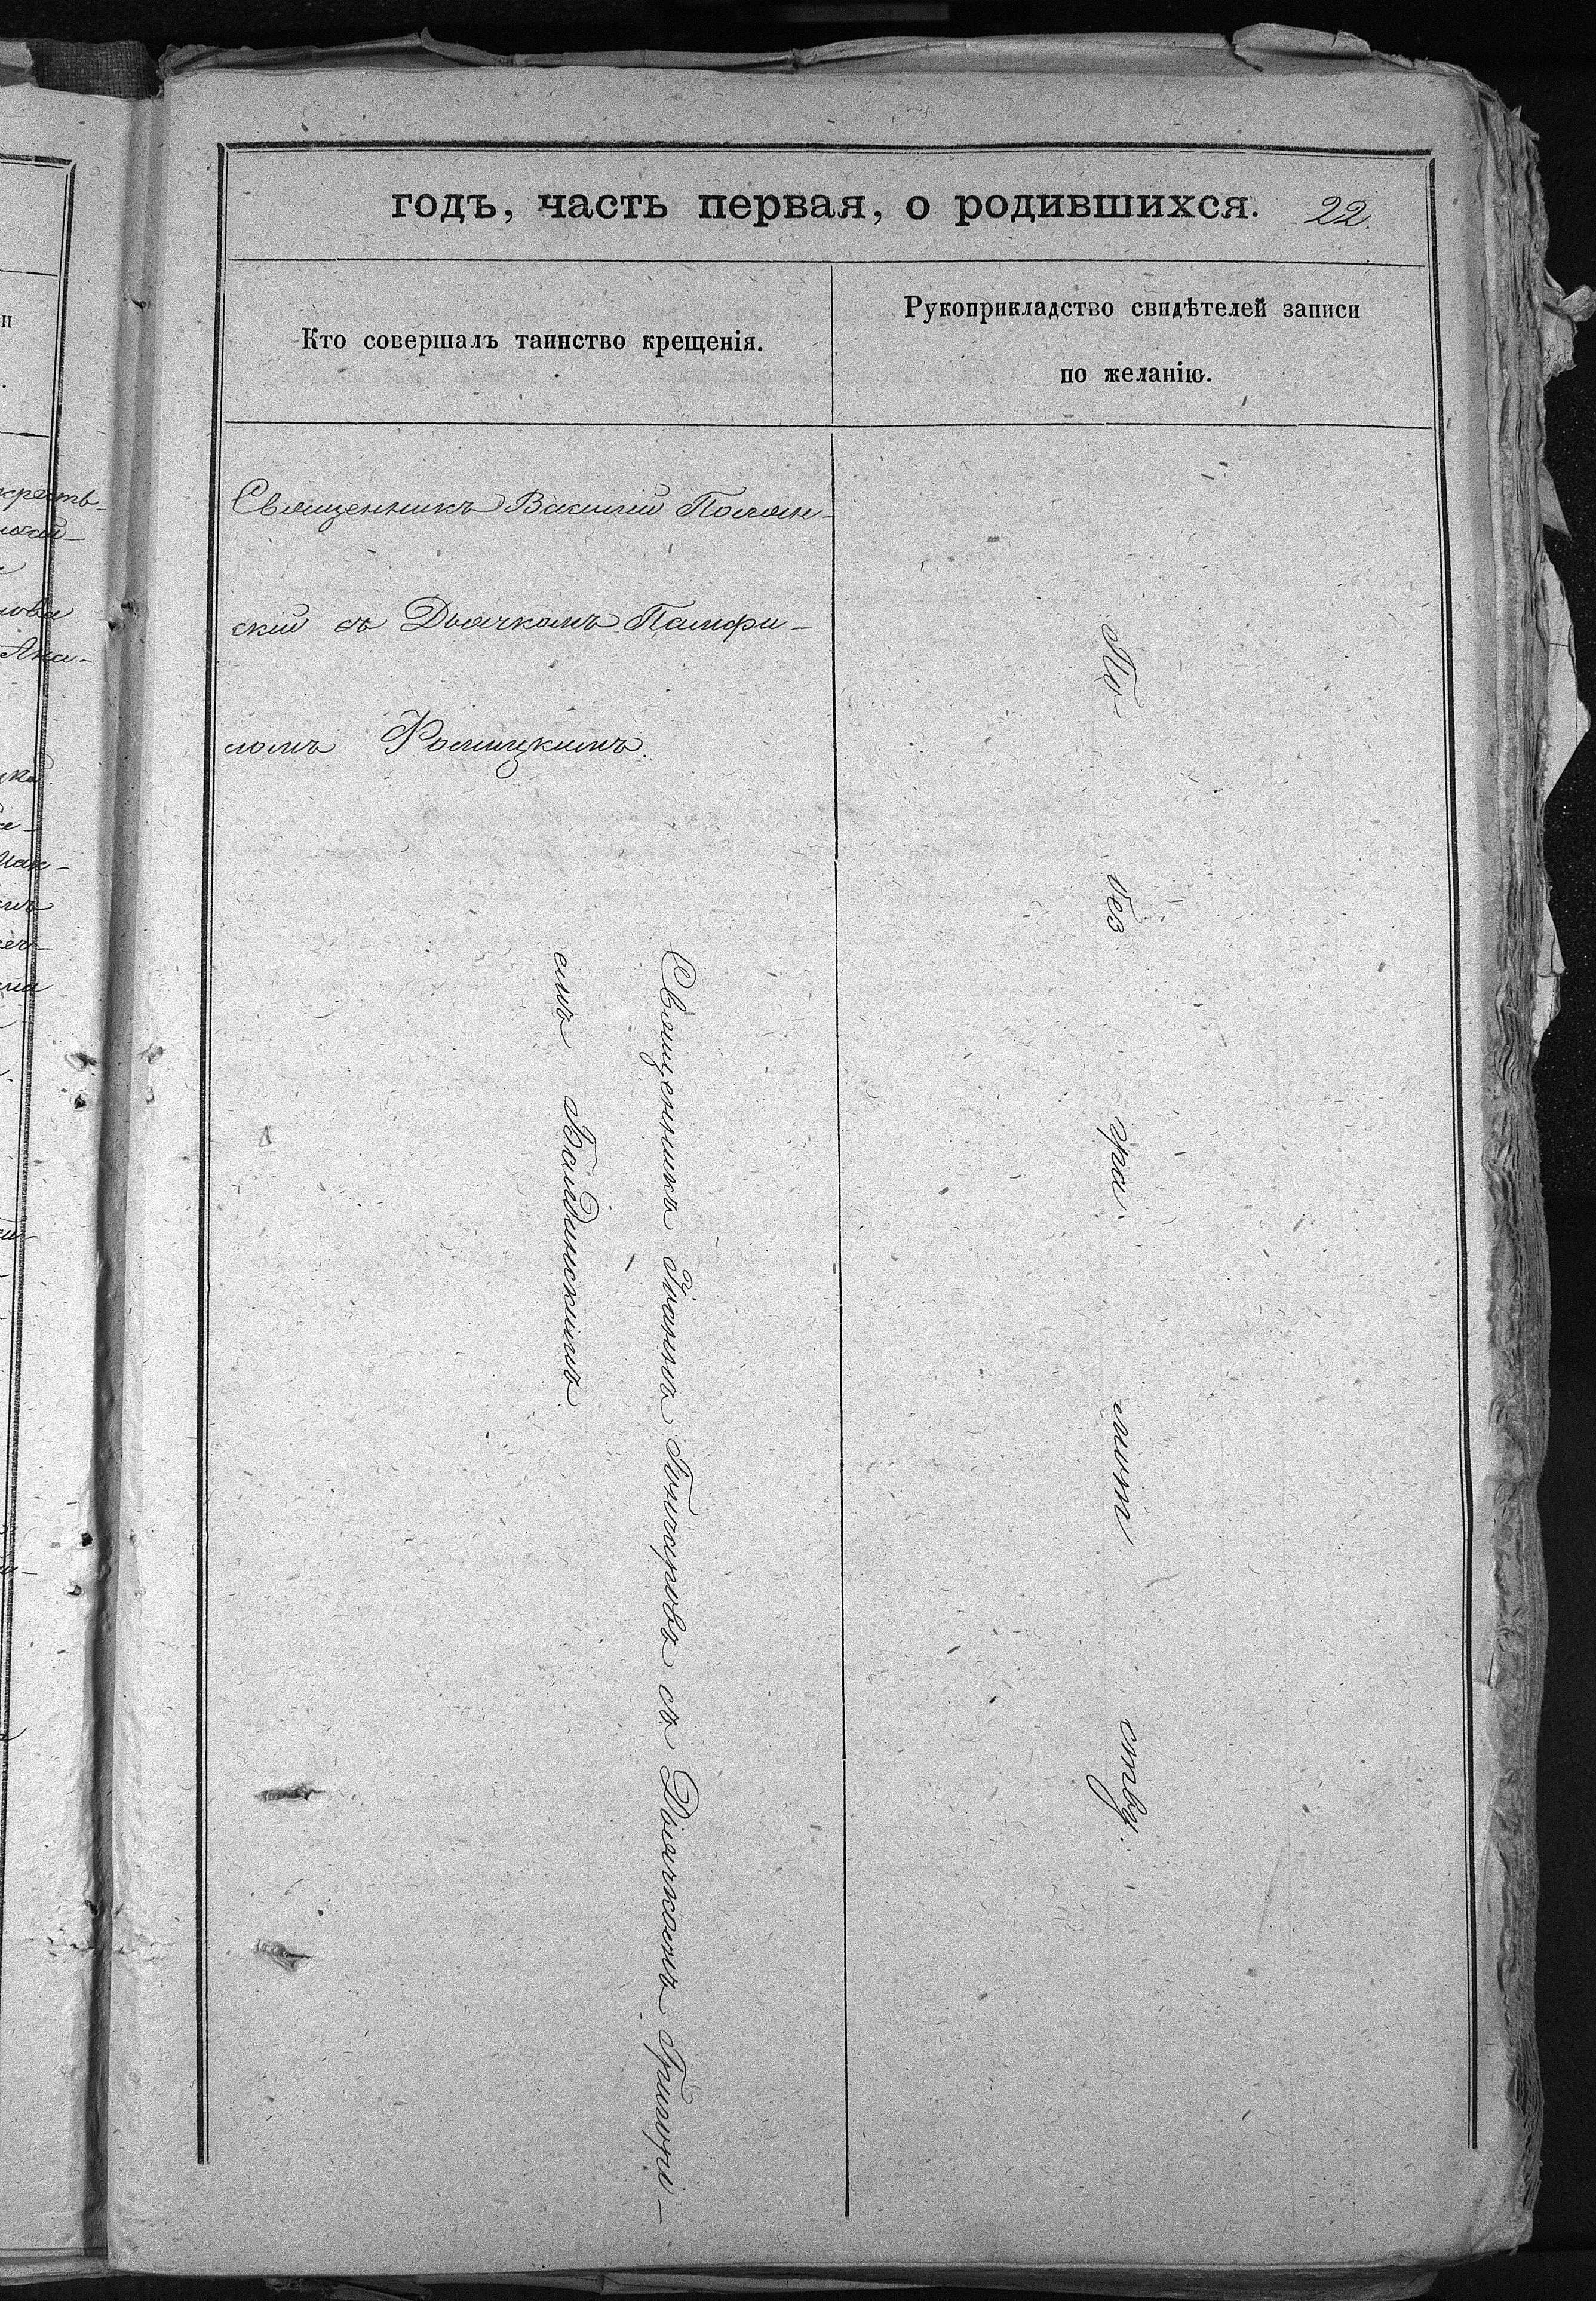 годъ, часть первая, о родившихся. 22.
Кто совершалъ таинство крещенія.
Рукоприкладство свидѣтелей записи
по желанію.
Священникъ Василій Полян-
скій съ Дьячкомъ Памфи-
ломъ Фомицкимъ.
Священникъ Іоаннъ Гончаровъ съ Дьячкомъ Григорі-
емъ Балдинскимъ
По без гра мот ству.
кресть-
нова
Ана-